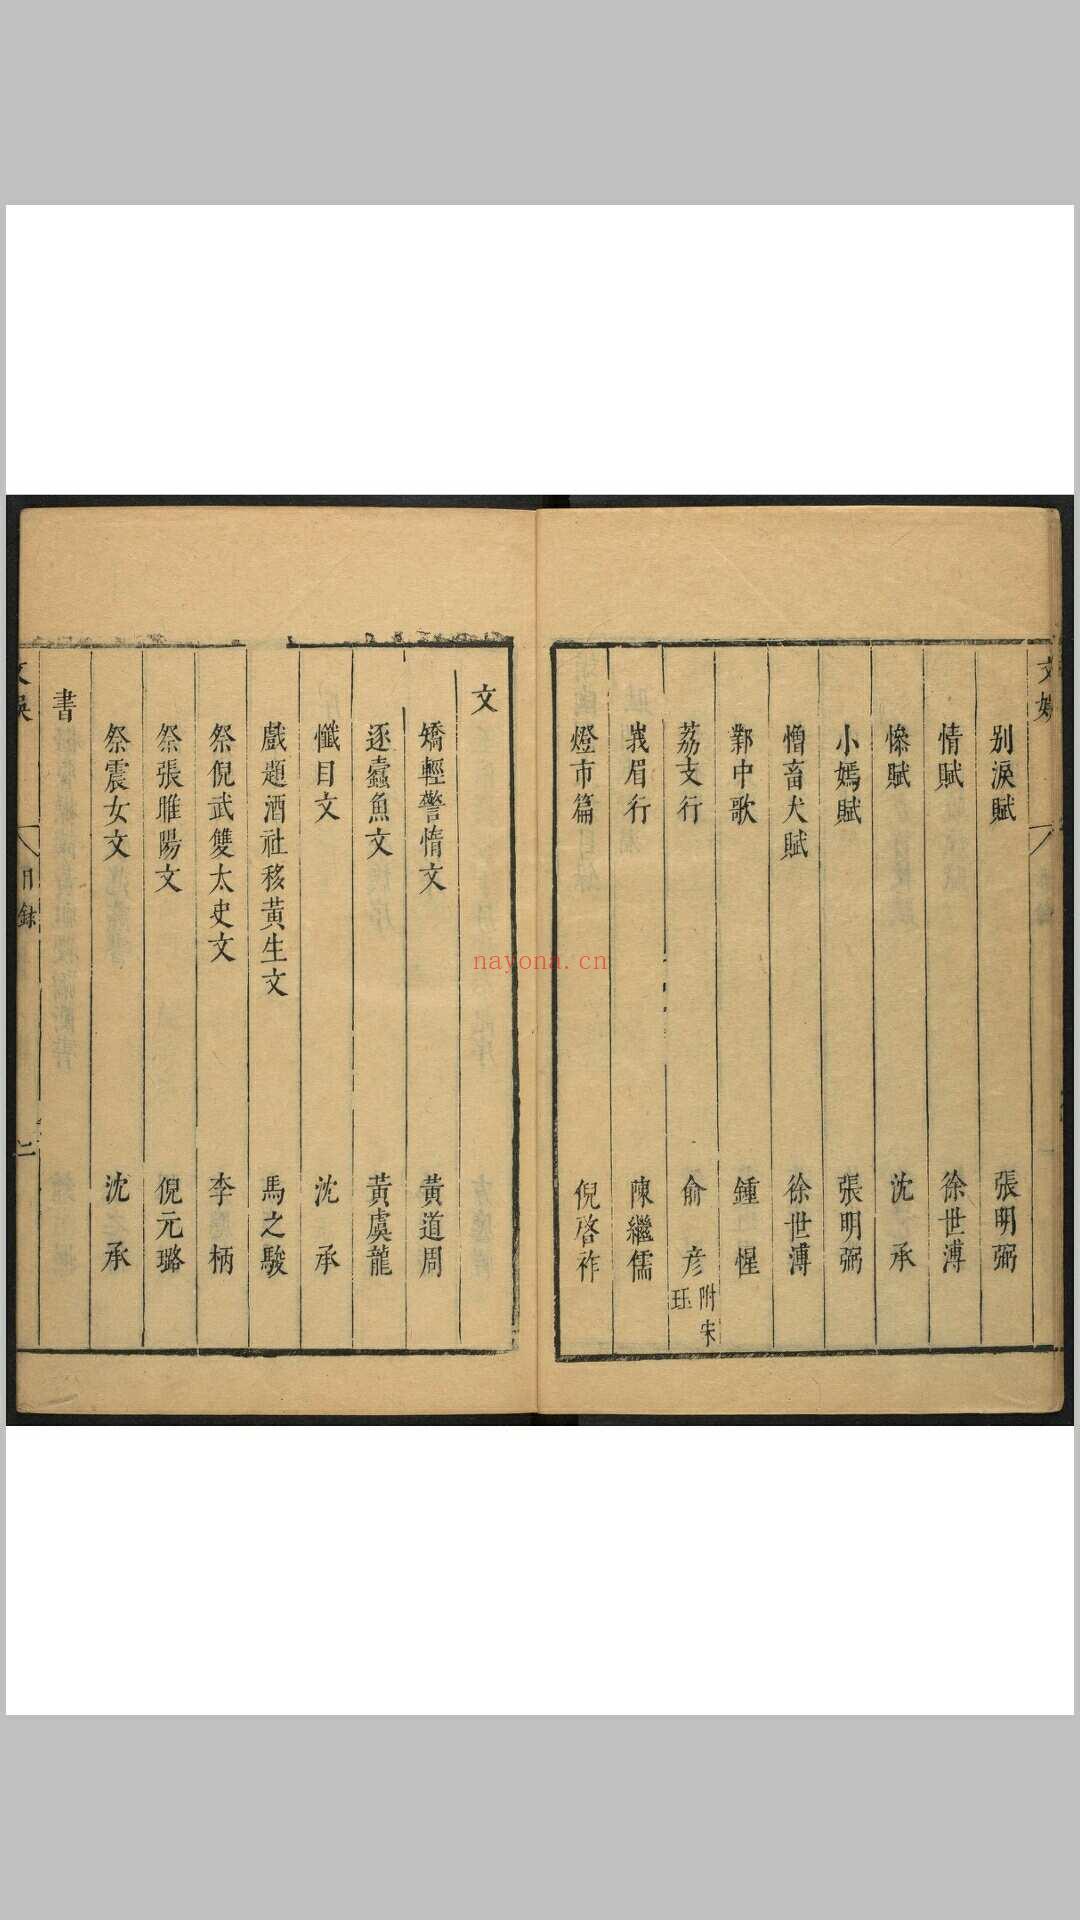 文娛
別淚賦 張明弼
情賦 徐世溥
慘賦 沈承
小嫣賦 張明弼
憎畜犬賦 徐世溥
鄴中歌 鍾惺
荔支行 俞彥 附宋珏
峩眉行 陳繼儒
燈市篇 倪啓祚
文
矯輕警惰文 黃道周
逐蠹魚文 黃虞龍
懺目文 沈承
戲題酒社移黃生文 馬之駿
祭倪武雙太史文 李柄
祭張睢陽文 倪元璐
祭震女文 沈承
書
文娛 目錄 二
nayona.cn